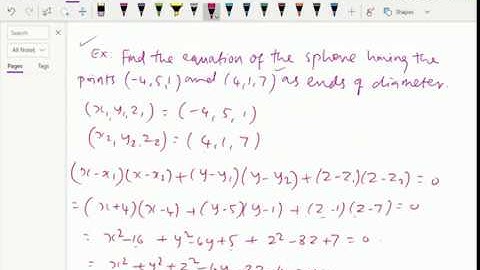 Shapes
Search
All Notes
Pages
Tags
Ex: Find the equation of the sphere having the
points (-4,5,1) and (4,1,7) as ends of diameter.
(x₁,y₁,z₁) = (-4, 5, 1)
(x₂,y₂,z₂) = (4, 1, 7)
(x-x₁)(x-x₂)+(y-y₁)(y-y₂)+(z-z₁)(z-z₂)=0
=(x+4)(x-4)+(y-5)(y-1)+(z-1)(z-7)=0
= x²-16 + y²-6y+5 + z²-8z+7=0